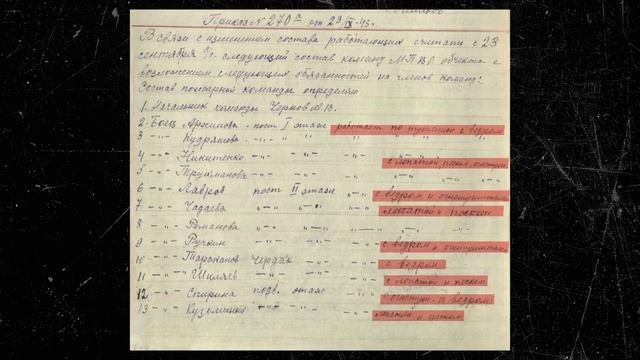 Приказ № 270а от 23/IX-43г.
В связи с изменением состава работающих считать с 23
сентября с/г. следующий состав команд МПВО объекта с
возложением следующих обязанностей на членов команд:
Состав пожарной команды определяю
1. Начальник команды Чернов А.В.
2-Боец Архипова - пост I этажа работает по тушению с ведром
3 -"- Кудряшова -"- -"- -"-
4 -"- Никитенко -"- -"- -"- с лопатой
5 -"- -"- -"- -"- -"- -"-
6 -"- Лавров пост II этажа -"- с ведром и огнетушителем
7 -"- Чадаева -"- -"- -"- лопатой и песком
8 -"- Романова -"- -"- -"- -"- -"-
9 -"- Ручкин -"- -"- -"- с ведром и огнетушителем
10 -"- Чердак -"- с ведром
11 -"- Шиляев -"- -"- с лопатой и песком
12 -"- Спирина подв. этаж -"- огнетуш. и ведром
13 -"- -"- -"- -"- лопатой и песком